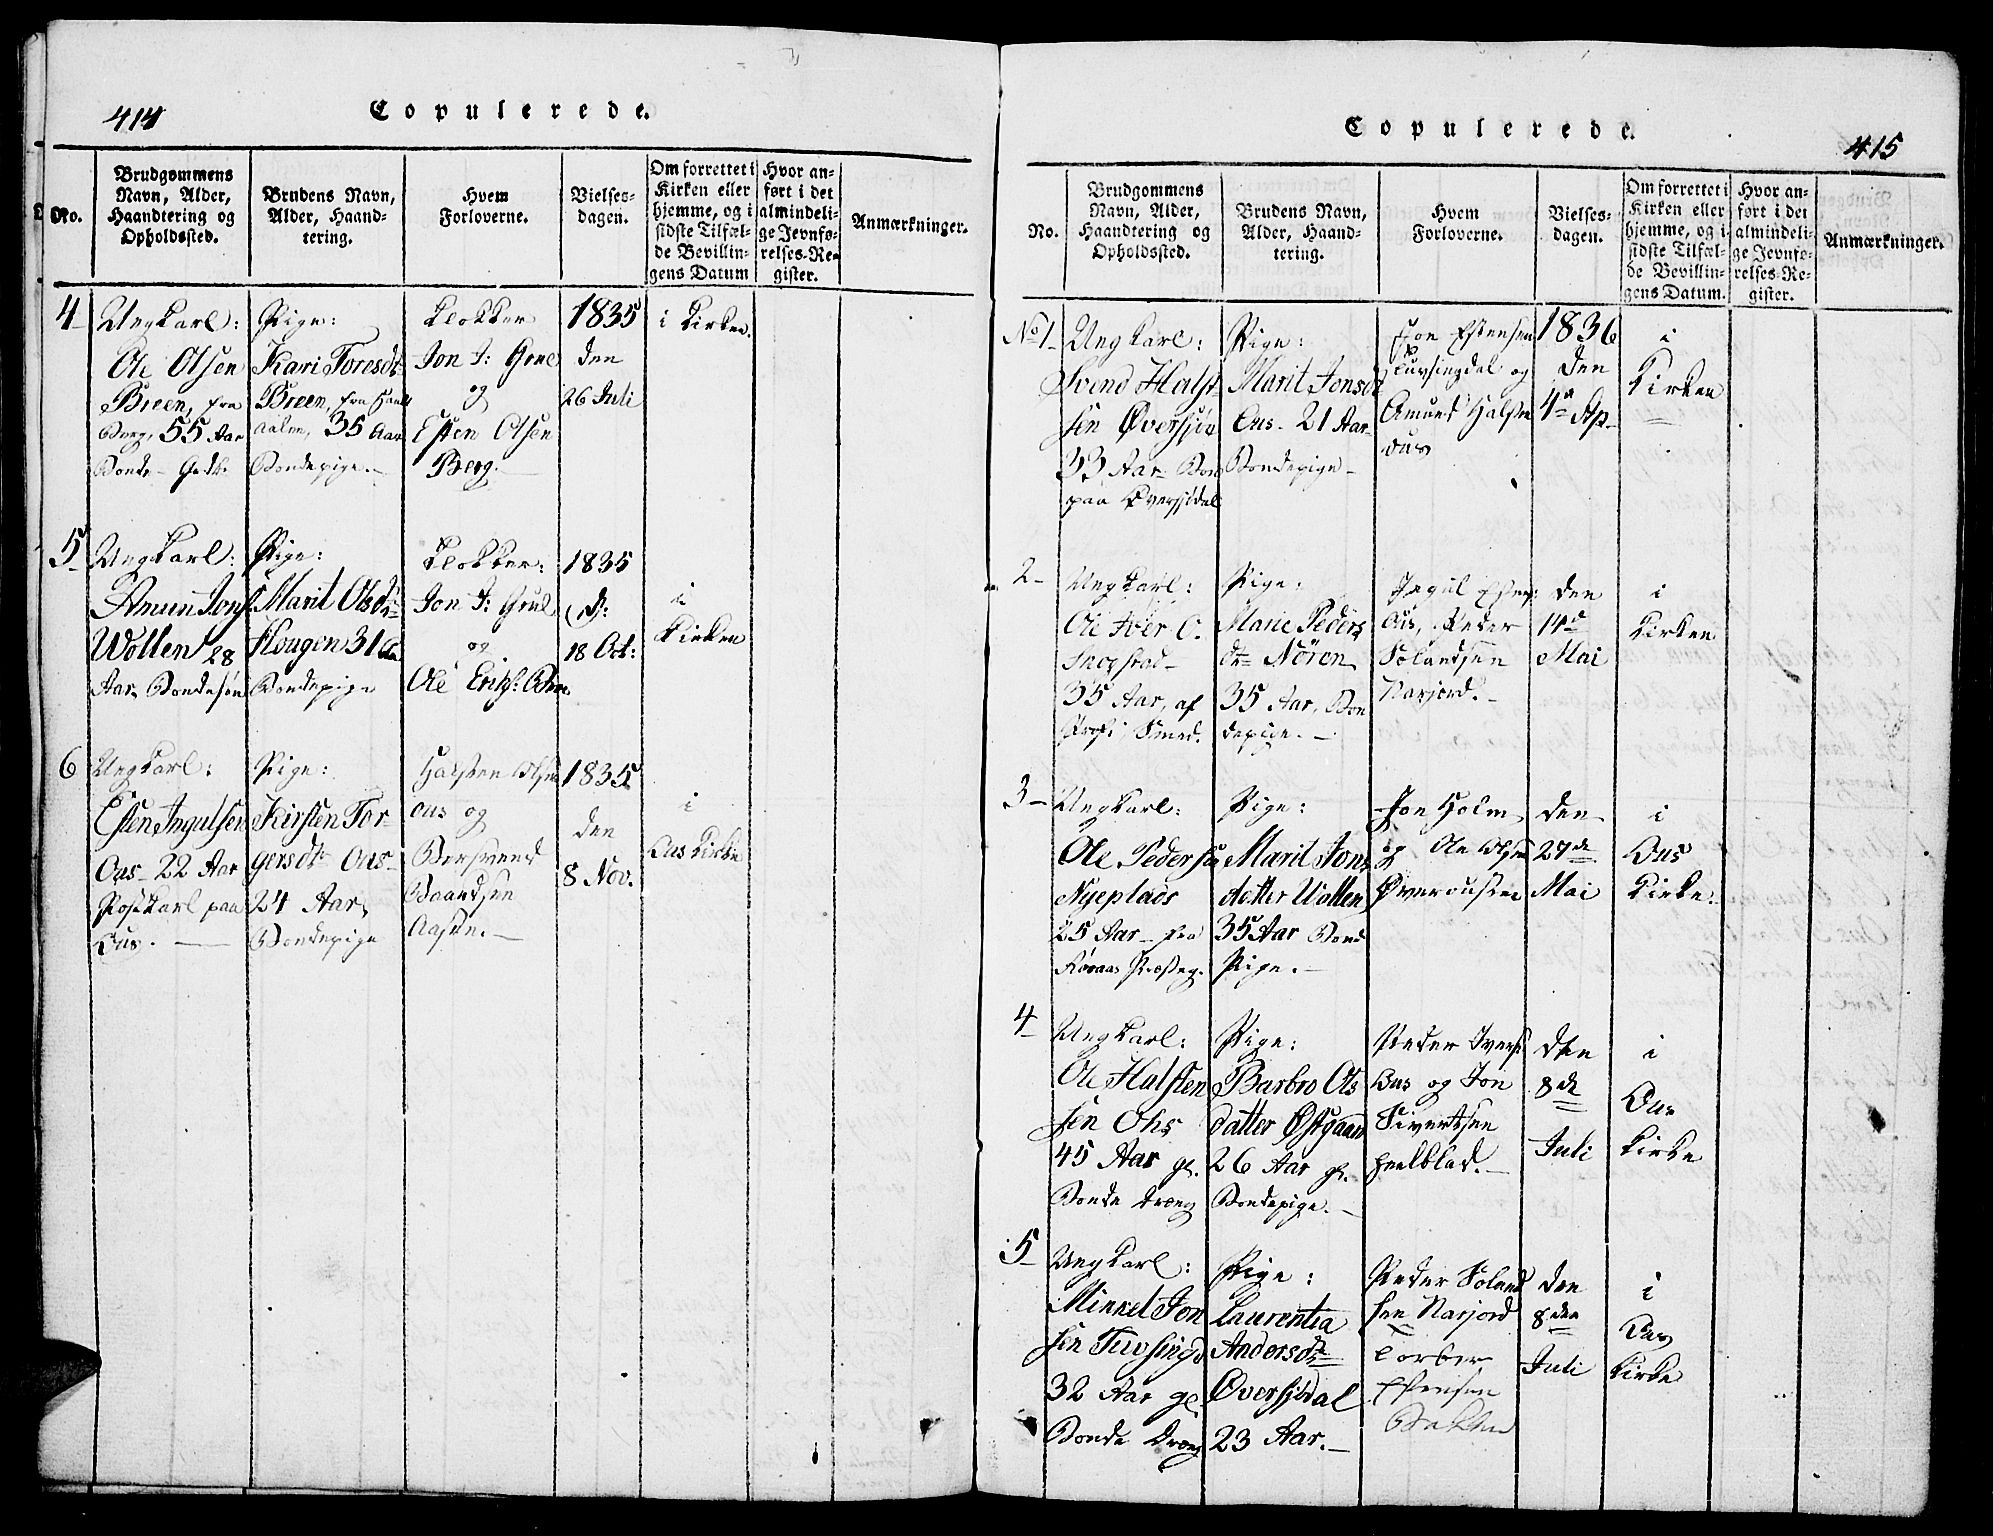 414
Copulerede.
No.
Brudgommens
Navn, Alder,
Haandtering og
Opholdssted.
Brudens Navn,
Alder, Haand-
tering.
Hvem
Forloverne.
Vielses-
dagen.
Om forrettet i
Kirken eller
hjemme, og i
sidste Tilfæl-
de Bevillin-
gens Datum
Hvor an-
ført i det
almindeli-
ge Jevnfø-
relses-Re-
gister.
Anmærkninger.
4
Ungkarl:
Ole Olsen
Breen, fra
Berg, 55 Aar
Bonde-
Pige:
Kari Toresdt
Breen, fra
Aalen, 35 Aar
Bondepige.
Klokker
Jon J:
og
Esten Olsen
Berg.
1835
den
26 Juli
i Kirken.
5
Ungkarl:
Amun Jons
Wollen 28
Aar Bondesøn
Pige:
Marit Olsdr
Hougen 31 Aar
Bondepige
Klokker:
Jon J:
og
Ole Eriks:
1835
d:
18 Oct:
i
Kirken
6
Ungkarl:
Esten Ingulsen
Oas 22 Aar
Postkarl paa
Ous.
Pige:
Kirsten Tor-
gersdtr Oas
24 Aar
Bondepige
Halsten Olsen
ous og
Bersvend
Baardsen
Aasen.
1835
den
8 Nov.
i
Ous Kirke
Copulerede.
415
No.
Brudgommens
Navn, Alder,
Haandtering og
Opholdssted.
Brudens Navn,
Alder, Haand-
tering.
Hvem
Forloverne.
Vielses-
dagen.
Om forrettet i
Kirken eller
hjemme, og i
sidste Tilfæl-
de Bevillin-
gens Datum.
Hvor an-
ført i det
almindeli-
ge Jevnfø-
relses-Re-
gister.
Anmærkninger.
No 1
Ungkarl:
Svend Halst
sen Øversjø
33 Aar
paa Øversjødal
Pige:
Marit Jonsdt
Ous- 21 Aar
Bondepige
Jon Estensen
Tuvsingdal og
Amund Halsten
ous
1836
den
4de Ap
i
Kirken
2
Ungkarl:
Ole Iver O.
35 Aar, af
Smed.
Pige:
Marie Peders
dr Nören
35 Aar, Bon
depige.
Ingul Estens:
Ous, Peder
Tolandsen
Narjord.
den
14de
Mai
i
Kirken
3
Ungkarl:
Ole Pedersen
Nyeplads
25 Aar fra
Røraas Præsteg.
Pige:
Marit Jons
datter Wollen
35 Aar Bond
Pige.
Jon Holm
og Ole Olsen
Øverousten
den
27de
Mai
i
Ous
Kirke.
4
Ungkarl:
Ole Halsten
sen Ohs
45 Aar gl.
Bonde dreng
Pige:
Barbro Ols
datter Østgaard
26 Aar gl.
Bondepige.
Peder Ivers
Ous og Jon
Sivertsen
den
8de
Juli
i
Ous
Kirke
5
Ungkarl:
Mikkel Jon
sen Tuvsingd
32 Aar gl
Bonde dreng
Pige:
Laurentia
Andersdtr
Øversjødal
23 Aar.
Peder Toland
sen Narjord
Torber
Estensen
Bakken
den
8den
Juli
i
Ous
Kirke